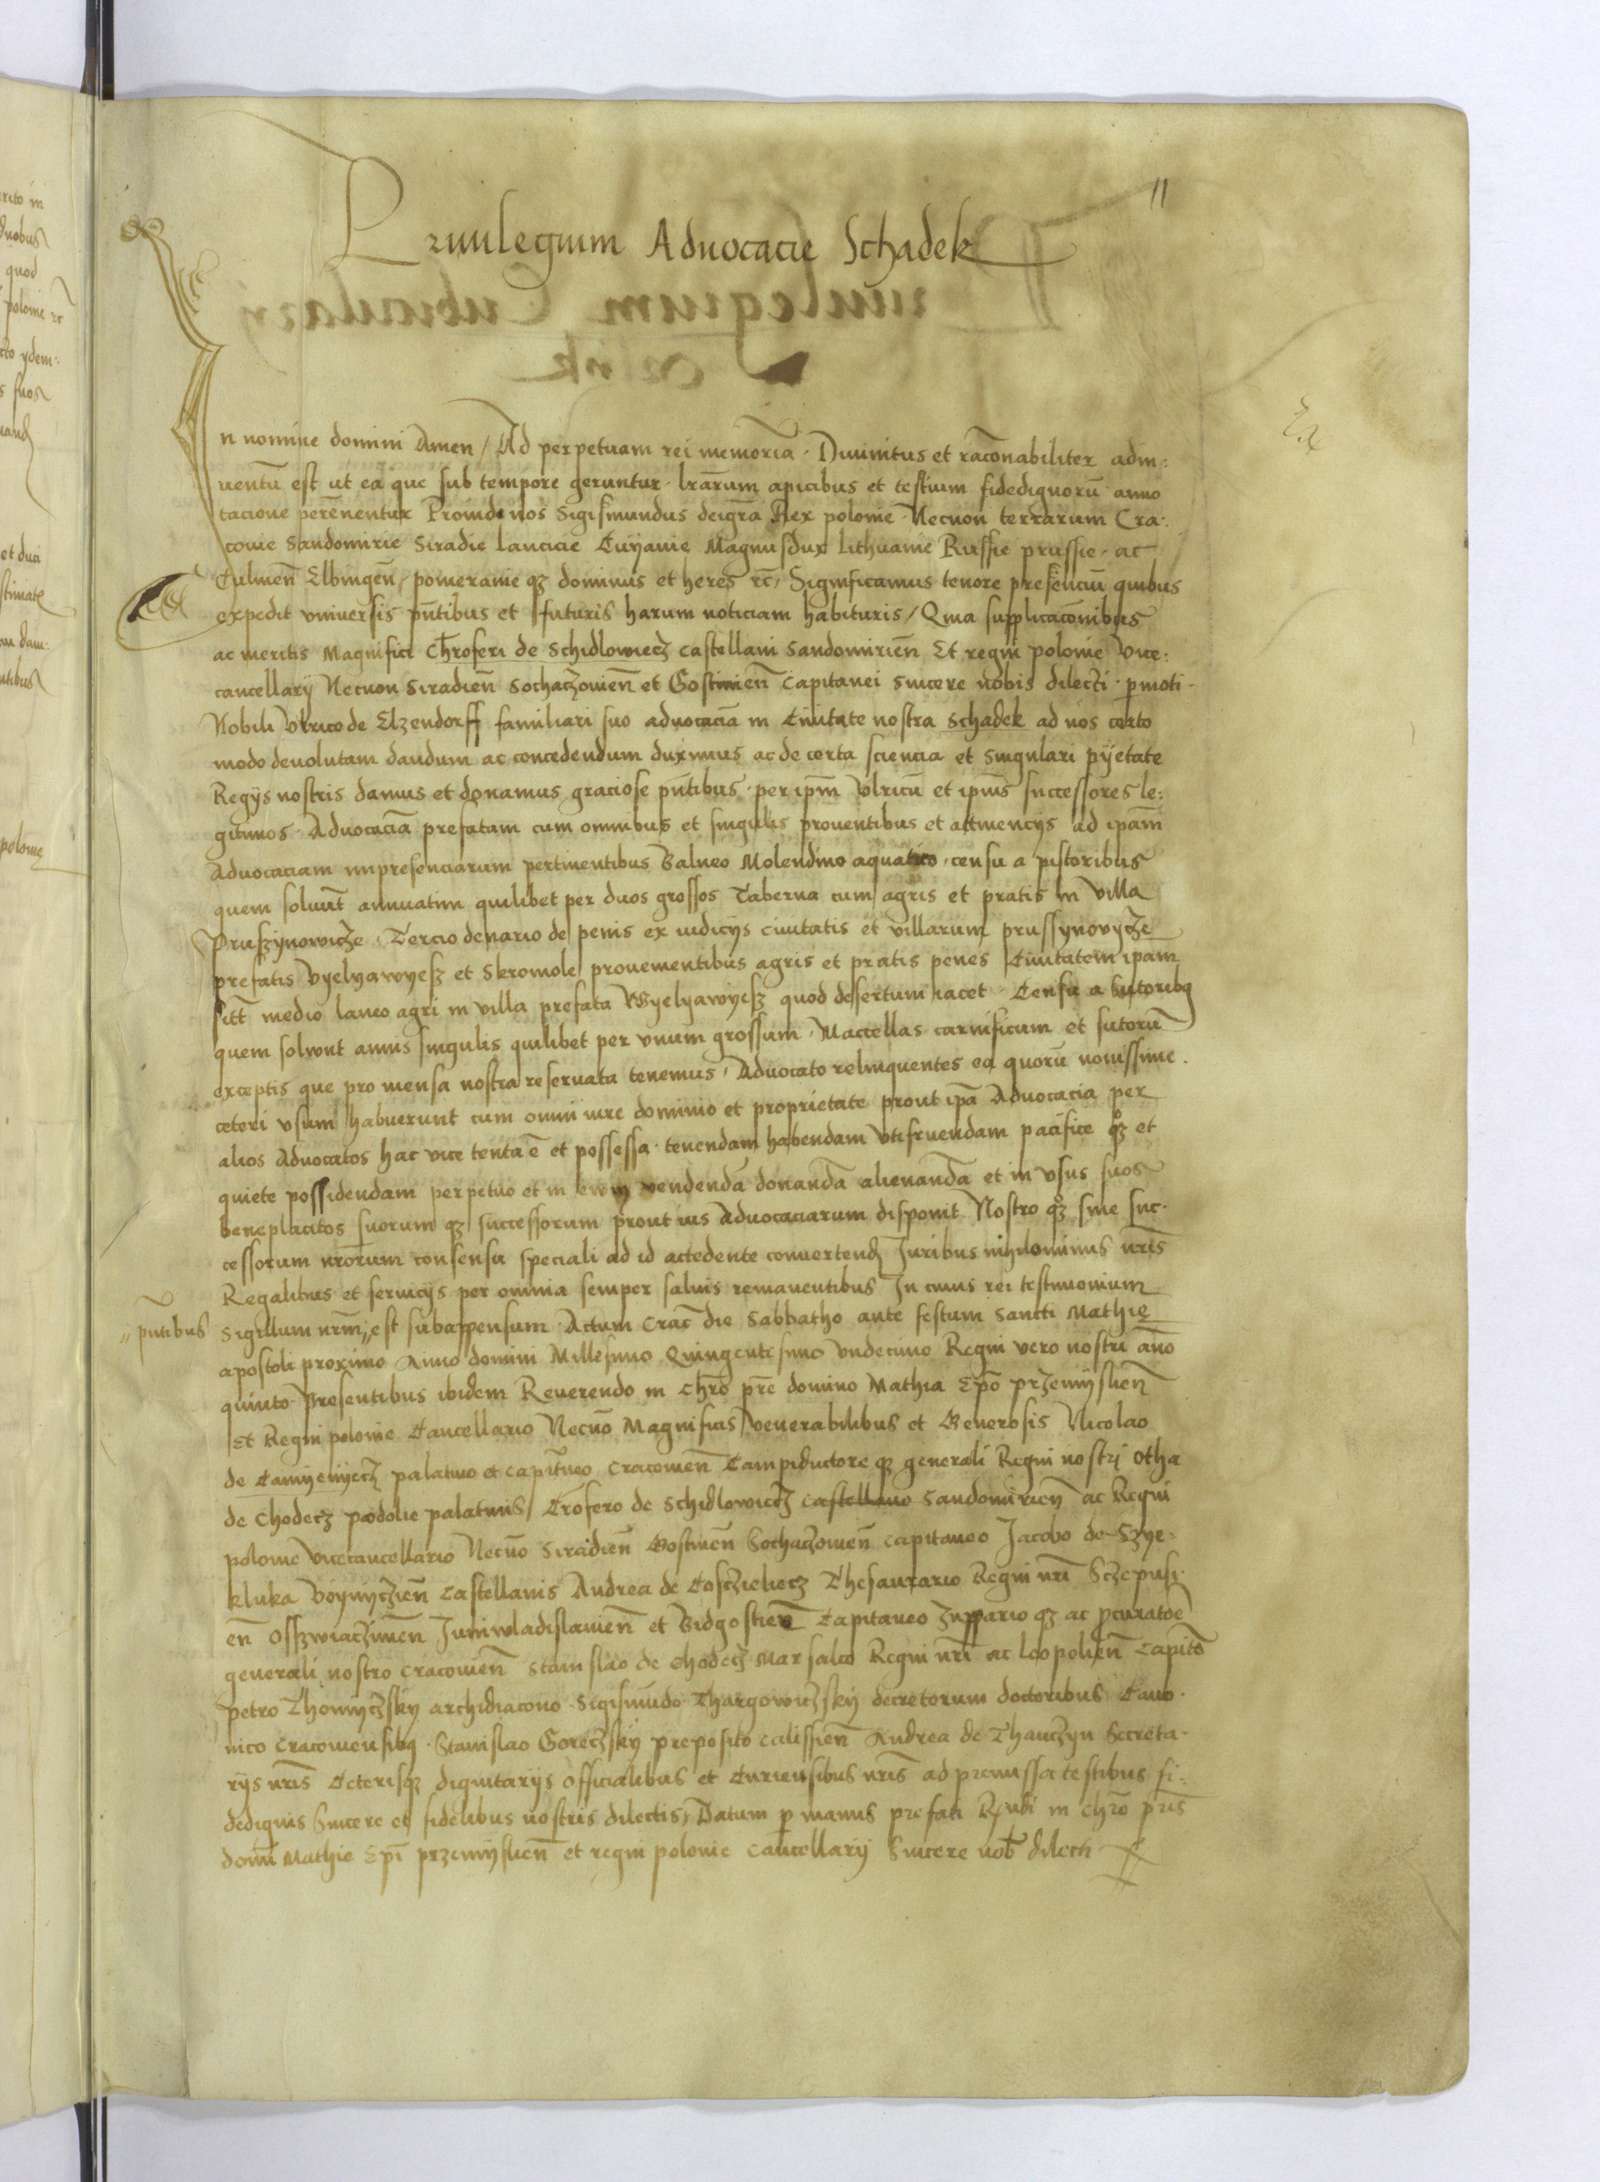 11
Priuilegium Aduocacie Schadek
Ex
In nomine domini Amen / Ad perpetuam rei memoriā . Diuinitus et rac̄onabiliter adin:
uentū est ut ea que sub tempore geruntur . lr̄arum apicibus et testium fidedignorū anno
tacione perēnentur Proinde nos Sigismundus deigr̄a Rex polonie . Necnon terrarum Cra:
couie Sandomirie Siradie lancicie Cuyauie Magnusdux Lithuanie Russie prussie . ac
Culmeñ Elbingeñ / pomeranie qz dominus et heres rc̄ / Significamus tenore presenciū quibus
expedit vniuersis pn̄tibus et futuris harum noticiam habituris / Quia supplicac̄onibus
ac meritis Magnifici Chr̄oferi de Schidlowiecz castellani Sandomirieñ Et regni polonie Vice:
cancellarij Necnon Siradieñ Sochaczouieñ et Gostinieñ Capitanei Sincere nobis dilecti . p̄moti .
Nobili Vlrico de Elzendorff familiari suo aduocaciā in Ciuitate nostra Schadek ad nos certo
modo deuolutam dandum ac concedendum duximus ac de certa sciencia et singulari pyetate
Regijs nostris damus et donamus graciose pn̄tibus . per ipm̄ Vlricū et ipius successores le:
gitimos . Aduocaciā prefatam cum omnibus et singulis prouentibus et attinencijs ad ipam̄
aduocaciam inpresenciarum pertinentibus Balneo Molendino aquatico . censu a pistoribus
quem soluūt annuatim quilibet per duos grossos Taberna cum agris et pratis in villa
Pruszynowicze . Tercio denario de penis ex iudicijs ciuitatis et villarum prussynovycze
prefatis Vyelyawyesz et Skromole prouenientibus agris et pratis penes Ciuitatem ipam
sitt̄ medio laneo agri in villa prefata Wyelyawyesz quod desertum iacet . Censu a sutoribq
quem soluunt annis singulis quilibet per vnum grossum . Maccellas . carnificum et sutorū
exceptis que pro mensa nostra reseruata tenemus / Aduocato relinquentes ea quorū nouissime .
ceteri vsum habuerunt cum omni iure dominio et proprietate prout ipa Aduocacia per
alios aduocatos hac vice tenta ē et possessa . tenendam habendam vtifruendam pacifice qz et
quiete possidendam perpetuo et in vendendā donandā alienandā et in vsus suos
beneplacitos suorum qz successorum prout ius Aduocaciarum disponit Nostro qz siue suc .
cessorum nr̄orum consensu speciali ad id accedente conuertend Juribus nihilominus nr̄is
Regalibus et seruicijs per omnia semper saluis remanentibus In cuius rei testimonium
" pn̄tibus
Sigillum nrm̄ " est subappensum . Actum Crac̄ die Sabbatho ante festum Sancti Mathie
apostoli proximo Anno domini Millesimo Quingentesimo vndecimo Regni vero nostri año
quinto . Presentibus ibidem Reuerendo in chr̄o pr̄e domino Mathia Ep̄o przemyslieñ
Et Regni polonie Cancellario Necnō Magnificis / Venerabilibus et Generosis Nicolao
de Camyenyecz palatino et capitn̄eo Cracouieñ Campiductore qz generali Regni nostri Otha
de Chodecz podolie palatinis / Cr̄ofero de Schidlowiecz castellano Sandomirieñ ac Regni
polonie vicecancellario Necnō Siradieñ Gostineñ Sochaczouieñ capitaneo Jacobo de Szye
kluka Voynyczieñ Castellanis Andrea de Cosczielecz Thesaurario Regni nr̄i Sczepusi .
eñ Osszwiaczimeñ Juniwladislauieñ et Bidgostieñ Capitaneo Zuppario qz ac procuratoē
generali nostro Cracouieñ Stanislao de Chodecz Marsalco Regni nr̄i ac leopolieñ Capitō
Petro Thomyczsky archidiacono . Sigismūdo Thargowiczsky decretorum doctoribus Cano .
nico Cracouiensibq . Stanislao Goreczsky preposito calissieñ Andrea de Thanczyn Secreta .
rijs nr̄is Ceterisqz dignitarijs officialibus et Curiensibus nr̄is ad premissa testibus fi:
dedignis Sincere et fidelibus nostris dilectis / Datum p manus prefati Rn̄di in chr̄o pr̄is
domī Mathie Ep̄i przemyslieñ et regni polonie Cancellarij Sincere nob̄ dilecti